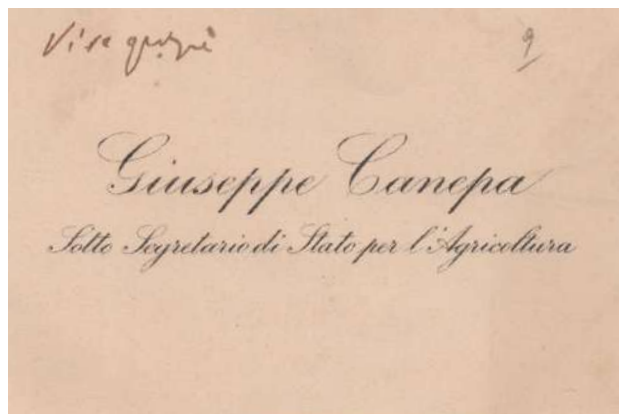 Vive grazie
9
Giuseppe Canepa
Sotto Segretario di Stato per l'Agricoltura